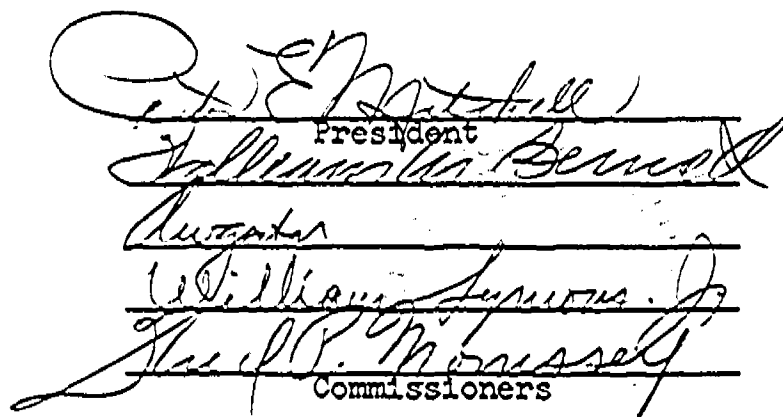 Peter E. Mitchell
President
William M. Bennett
William Symons. Jr
P. Morrissey
Commissioners